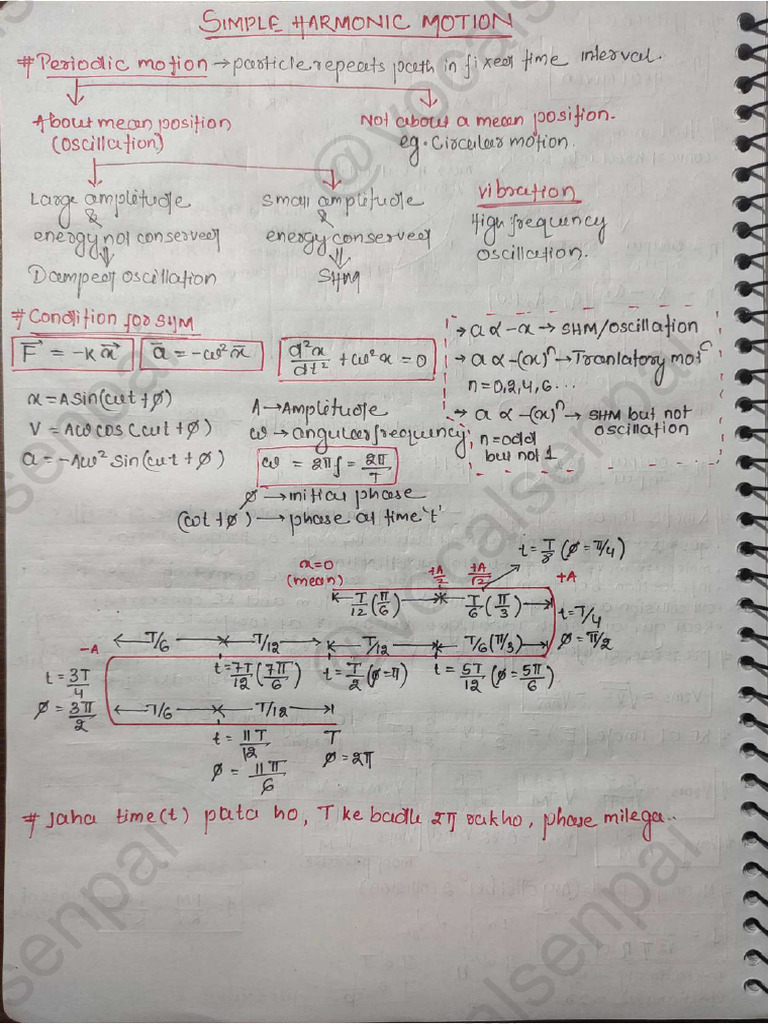 SIMPLE HARMONIC MOTION
# Periodic motion → particle repeats path in fixed time interval.
About mean position
(oscillation)
Not about a mean position.
eg. Circular motion.
Large amplitude
&
energy not conserved
Damped oscillation
Small amplitude
&
energy conserved
SHM
vibration
High frequency
oscillation.
# Condition for SHM
F⃗ = -kx⃗
a⃗ = -ω²x⃗
d²x/dt² + ω²x = 0
→ a α -x → SHM/oscillation
→ a α -(x)ⁿ → Tranlatory motⁿ
n = 0, 2, 4, 6 ...
→ a α -(x)ⁿ → SHM but not oscillation
n = odd
but not 1
x = A sin(ωt + ø)
V = Aω cos(ωt + ø)
a = -Aω² sin(ωt + ø)
A → Amplitude
ω → angular frequency
ω = 2πf = 2π/T
ø → initial phase
(ωt + ø) → phase at time 't'
t = T/8 (ø = π/4)
x=0
(mean)
+A/2
+A/√2
+A
T/12 (π/6)
T/6 (π/3)
t = T/4
ø = π/2
-A
T/6
T/12
T/12
T/6 (π/3)
t = 3T/4
ø = 3π/2
t = 7T/12 (7π/6)
t = T/2 (ø = π)
t = 5T/12 (ø = 5π/6)
T/6
T/12
t = 11T/12
ø = 11π/6
T
ø = 2π
# Jaha time(t) pata ho, T ke badle 2π rakho, phase milega..
@vocalsenpai